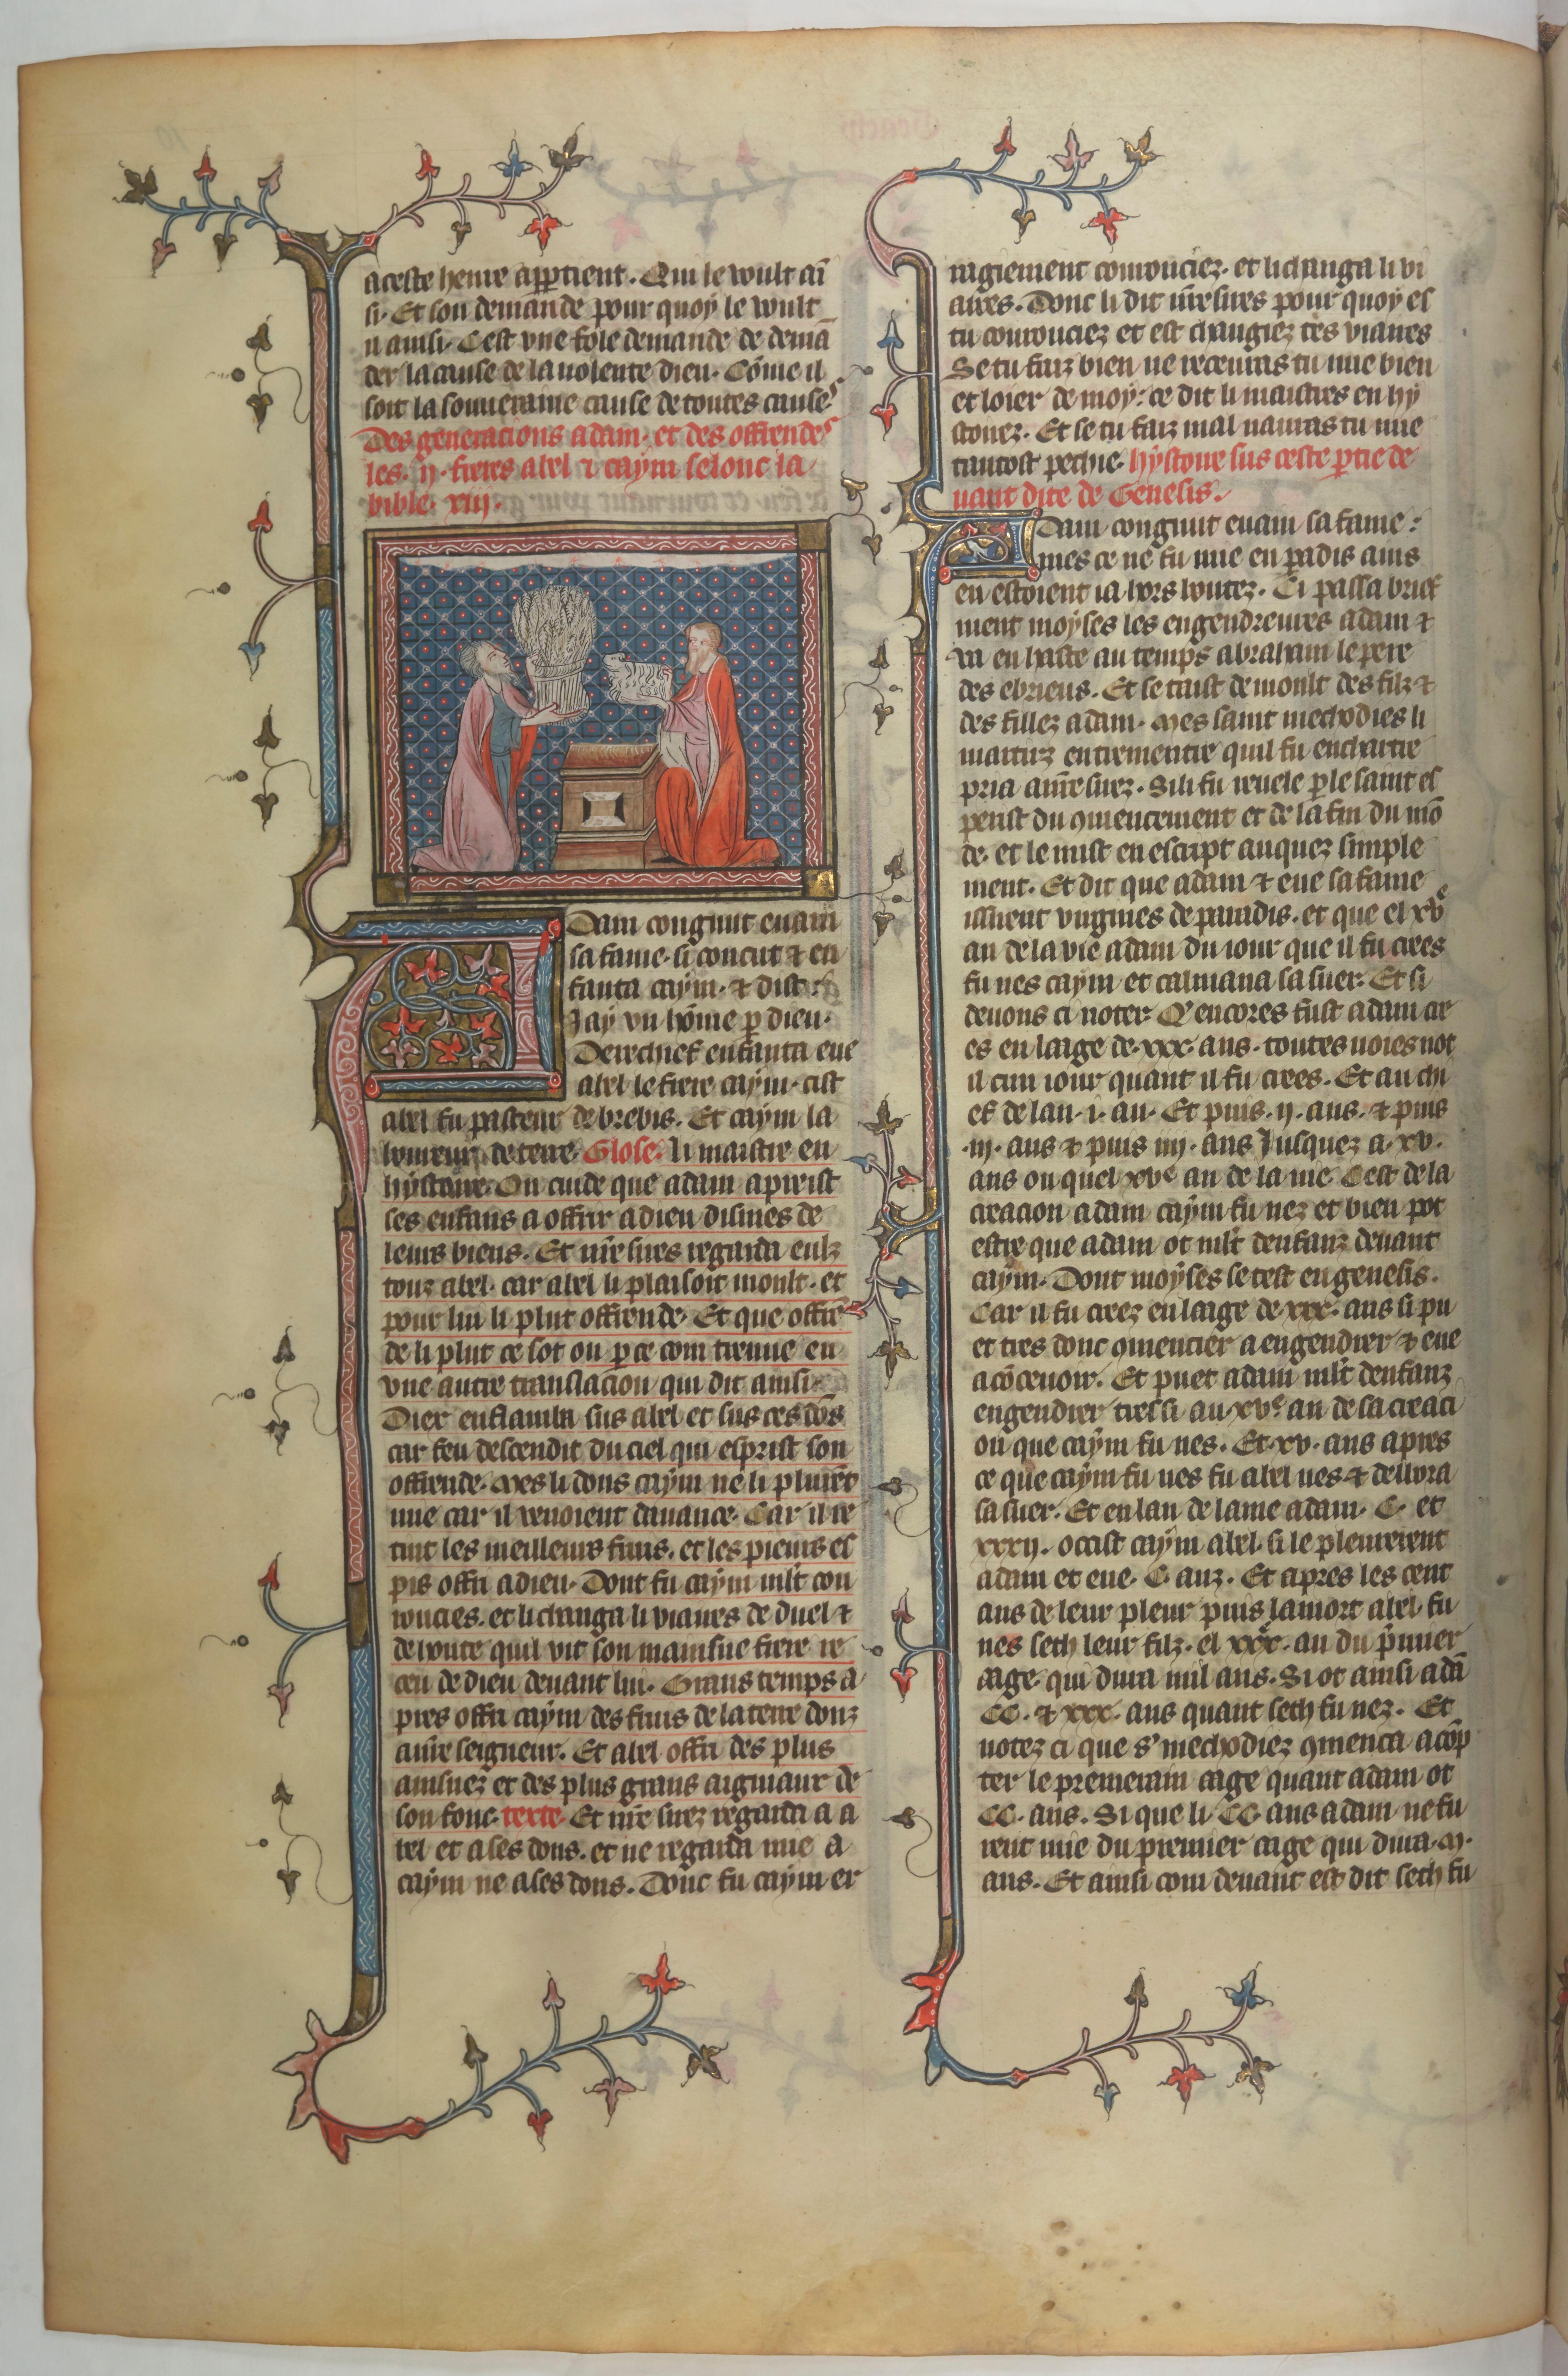 aceste heure appartient. Qui le voult ai
si. Et son demande pour quoy le voult
il ainsi. Cest vne fole demande de demā
der la cause de la uolente dieu. Cōme il
soit la souueraine cause de toutes causes
Des generacions adam. et des offrendes
les .ij. freres abel ⁊ caÿm selonc la
bible. xiij.
Adam congnut euam
sa fame. si concut ⁊ en
fanta caÿm. ⁊ dist:
Jaÿ vn hōme p dieu.
Derechief enfanta eue
abel le frere caÿm. cist
abel fu pasteur de brebis. Et caÿm la
boureur de terre. Glose. li maistre en
hÿstoire. On cuide que adam aprist
ses enfans a offrir a dieu dismes de
leurs biens. Et nr̄e sires regarda eulz
touz abel. car abel li plaisoit moult. et
pour lui li plut offrende. Et que offrē
de li plut ce sot ou p ce com treuue en
vne autre translacion qui dit ainsi
Diex enflamba sus abel et sus ces dōs
car feu descendit du ciel qui esprist son
offrende. Mes li dons caÿm ne li plurēt
mie car il venoient dauance. Car il re
tint les meilleurs fruis. et les pieurs es
pis offri a dieu. Dont fu caÿm ml̄t cou
roucies. et li changa li viaires de duel ⁊
de honte quil vit son mainsne frere re
ceu de dieu deuant lui. Grans temps a
pres offri caÿm des fruis de la terre donz
a nr̄e seigneur. Et abel offri des plus
ainsnez et des plus graus aigniaux de
son fouc. texte. Et nr̄e sirez regarda a a
bel et a ses dons. et ne regarda mie a
caÿm ne a ses dons. Donc fu caÿm er
ragiement courouciez. et li changa li vi
aires. Donc li dit nr̄e sires pour quoy es
tu courouciez et est changiez tes viaires
Se tu faiz bien ne receuras tu mie bien
et loier de moy: ce dit li maistres en hÿ
stoirez. Et se tu faiz mal nauras tu mie
tantost pechie. hÿstoire sus ceste ptie de
uant dite de Genesis.
Adam congnut euam sa fame:
mes ce ne fu mie en padis ains
en estoient ia hors boutez. Ci passa brief
ment moÿses les engendreures adam ⁊
va en haste au temps abraham le pere
des ebrieus. Et se taist de moult des filz ⁊
des fillez adam. Mes saint methodies li
martirz entrementre quil fu enchartre
pria a nr̄e sirez. Si li fu reuele p le saint es
perist du 9mencement et de la fin du mō
de. et le mist en escript auquez simple
ment. Et dit que adam ⁊ eue sa fame
issirent virgines de paradis. et que el xvᵉ
an de la vie adam du iour que il fu crees
fu nes caÿm et calmana sa suer. Et si
deuons ci noter. Q'encores fust adam cre
es en laige de xxx. ans. toutes uoies not
il cun iour quant il fu crees. Et au chi
ef de lan .i. an. Et puis .ij. ans. ⁊ puis
.iij. ans ⁊ puis iiij. ans Jusquez a .xv.
ans ou quel xvᵉ an de la uie. Cest de la
creacion adam caÿm fu nez et bien pot
estre que adam ot ml̄t denfanz deuant
caÿm. Dont moÿses se test en genesis.
Car il fu creez en laige de xxx. ans si pu
et tres donc 9mencier a engendrer ⁊ eue
a cōceuoir. Et puet adam ml̄t denfanz
engendrer tres si au xvᵉ an de sa creaci
on que caÿm fu nes. Et .xv. ans apres
ce que caÿm fu nes fu abel nes ⁊ delbora
sa suer. Et en lan de lame adam. C. et
xxxij. occist caÿm abel. si le pleurerent
adam et eue. C. anz. Et apres les cent
ans de leur pleur puis la mort abel fu
nes seth leur filz. el xxx. an du p̄mier
eage. qui dura mil ans. Si ot ainsi adā
CC. ⁊ xxx. ans quant seth fu nez. Et
notez ci que s' methodiez 9menca a cōp
ter le premerain eage quant adam ot
CC. ans. Si que li .CC. ans adam ne fu
rent mie du premier eage qui dura .M.
ans. Et ainsi com deuant est dit seth fu